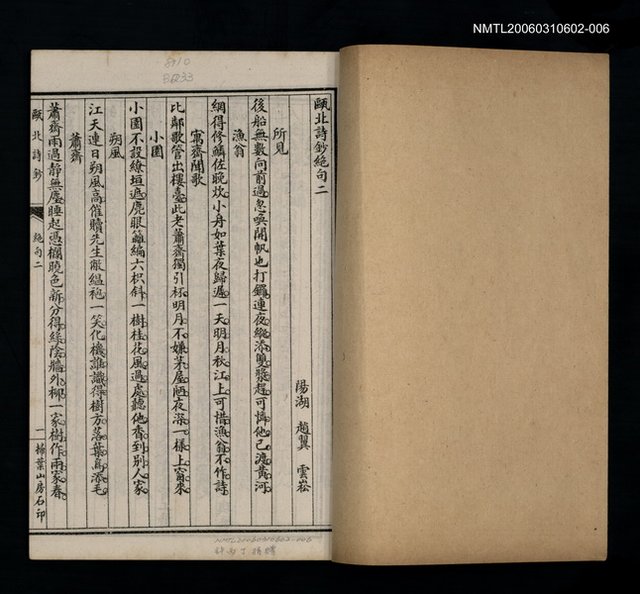 NMTL20060310602-006
8910
36233
甌北詩鈔絕句二
陽湖 趙翼 雲崧
所見
後船無數向前過忽喚開帆也打鑼連夜縱添雙槳趕可憐他已渡黃河
漁翁
網得修鱗佐晚炊小舟如葉夜歸遲一天明月秋江上可惜漁翁不作詩
寓齋聞歌
比鄰歌管出樓臺此老蕭齋獨引杯明月不嫌茅屋陋夜深一樣上窗來
小園
小園不設繚垣遮麂眼籬編六枳斜一樹桂花風過處聽他香到別人家
朔風
江天連日朔風高催贖先生敝縕袍一笑化機誰識得樹方落葉鳥添毛
蕭齋
蕭齋雨過靜無塵睡起憑欄曉色新分得綠陰牆外柳一家樹作兩家春
甌北詩鈔 絕句二 一 掃葉山房石印
NMTL20060310602-006